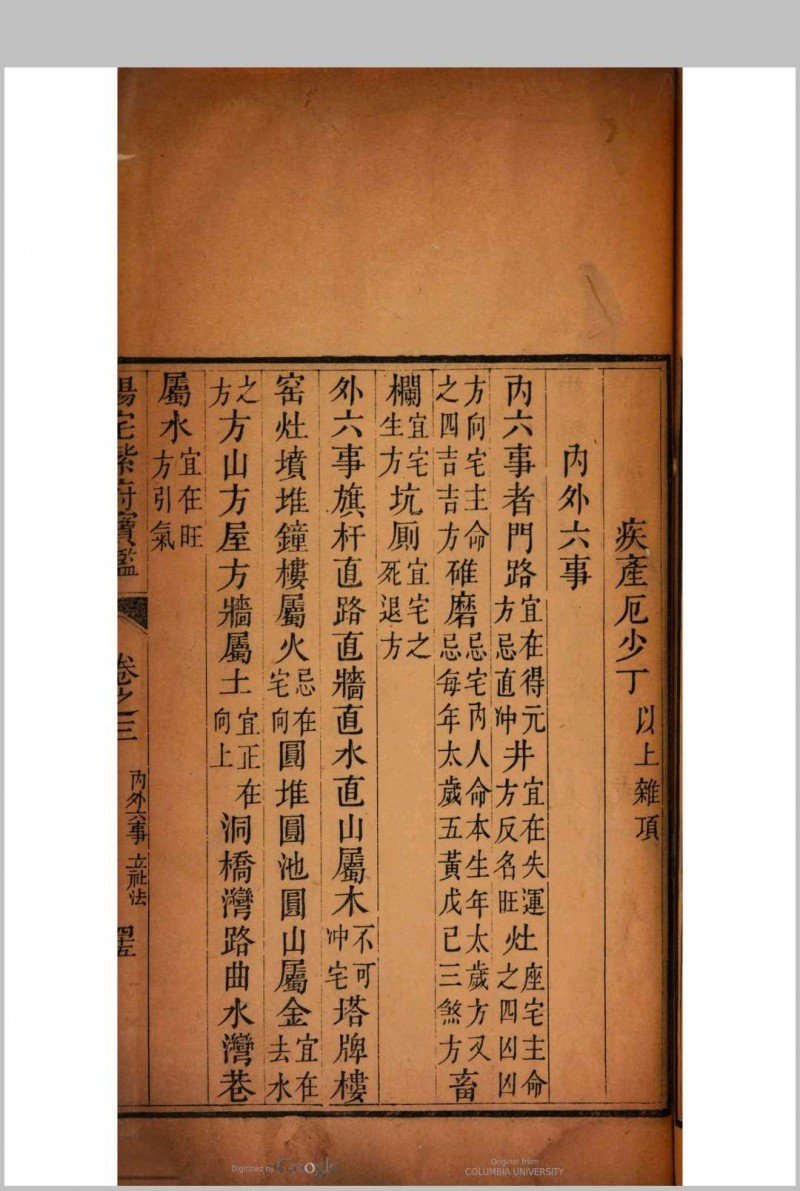 疾產厄少丁以上雜項
內外六事
內六事者門路宜在得元方忌直冲井宜在失運方反名旺灶座宅主命之四凶凶
方向宅主命之四吉吉方碓磨忌宅內人命本生年太歲方又忌每年太歲五黃戊己三煞方畜
欄宜宅生方坑厠宜宅之死退方
外六事旗杆直路直牆直水直山屬木不可冲宅塔牌樓
窑灶墳堆鐘樓屬火忌在宅向圓堆圓池圓山屬金宜在去水
之方方山方屋方牆屬土宜正在向上洞橋灣路曲水灣巷
屬水宜在旺方引氣
陽宅紫府寶鑑 卷之三 內外六事 立祉法 四五
Digitized by Google
Original from
COLUMBIA UNIVERSITY